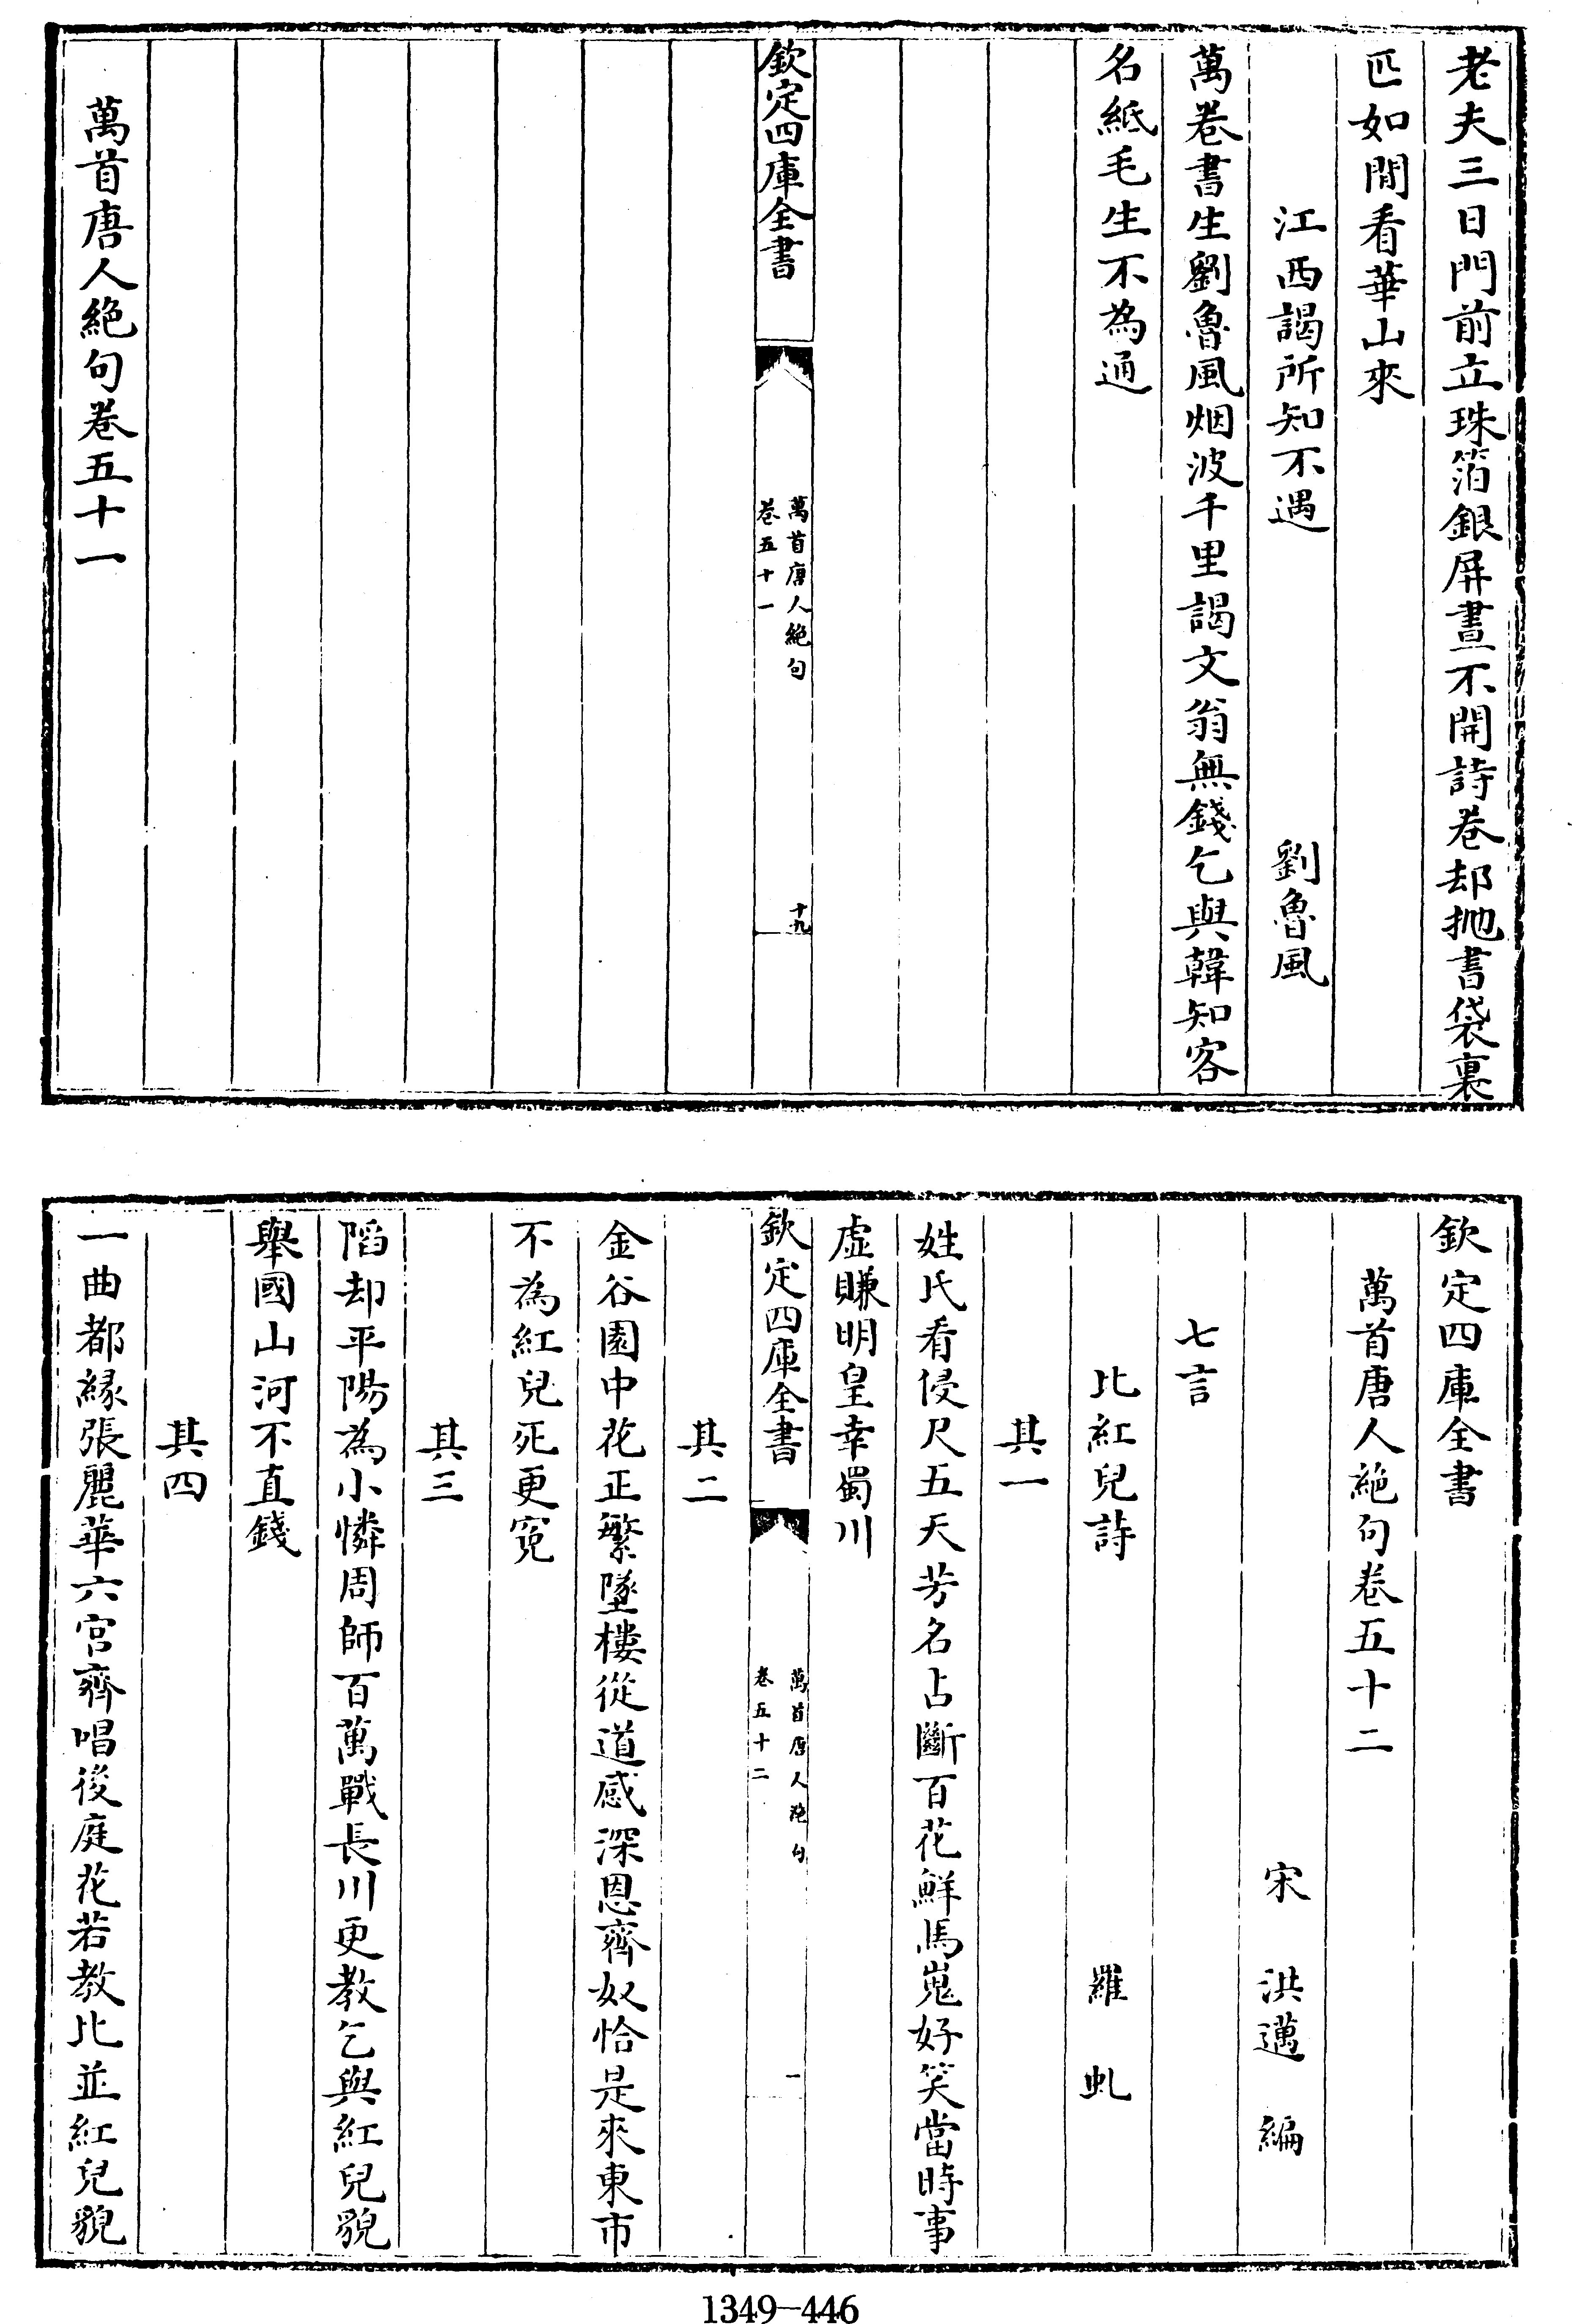 老夫三日門前立珠箔銀屏晝不開詩卷却抛書袋裏
匹如閒看華山來
江西謁所知不遇 劉魯風
萬卷書生劉魯風烟波千里謁文翁無錢乞與韓知客
名紙毛生不為通
欽定四庫全書
萬首唐人絶句
卷五十一
十九
萬首唐人絶句卷五十一
欽定四庫全書
萬首唐人絶句卷五十二
宋 洪邁 編
七言
比紅兒詩 羅虬
其一
姓氏看侵尺五天芳名占斷百花鮮馬嵬好笑當時事
虛賺明皇幸蜀川
欽定四庫全書
萬首唐人絶句
卷五十二
一
其二
金谷園中花正繁墜樓從道感深恩齊奴恰是來東市
不為紅兒死更寃
其三
陷却平陽為小憐周師百萬戰長川更教乞與紅兒貌
舉國山河不直錢
其四
一曲都緣張麗華六宮齊唱後庭花若教比並紅兒貌
1349-446